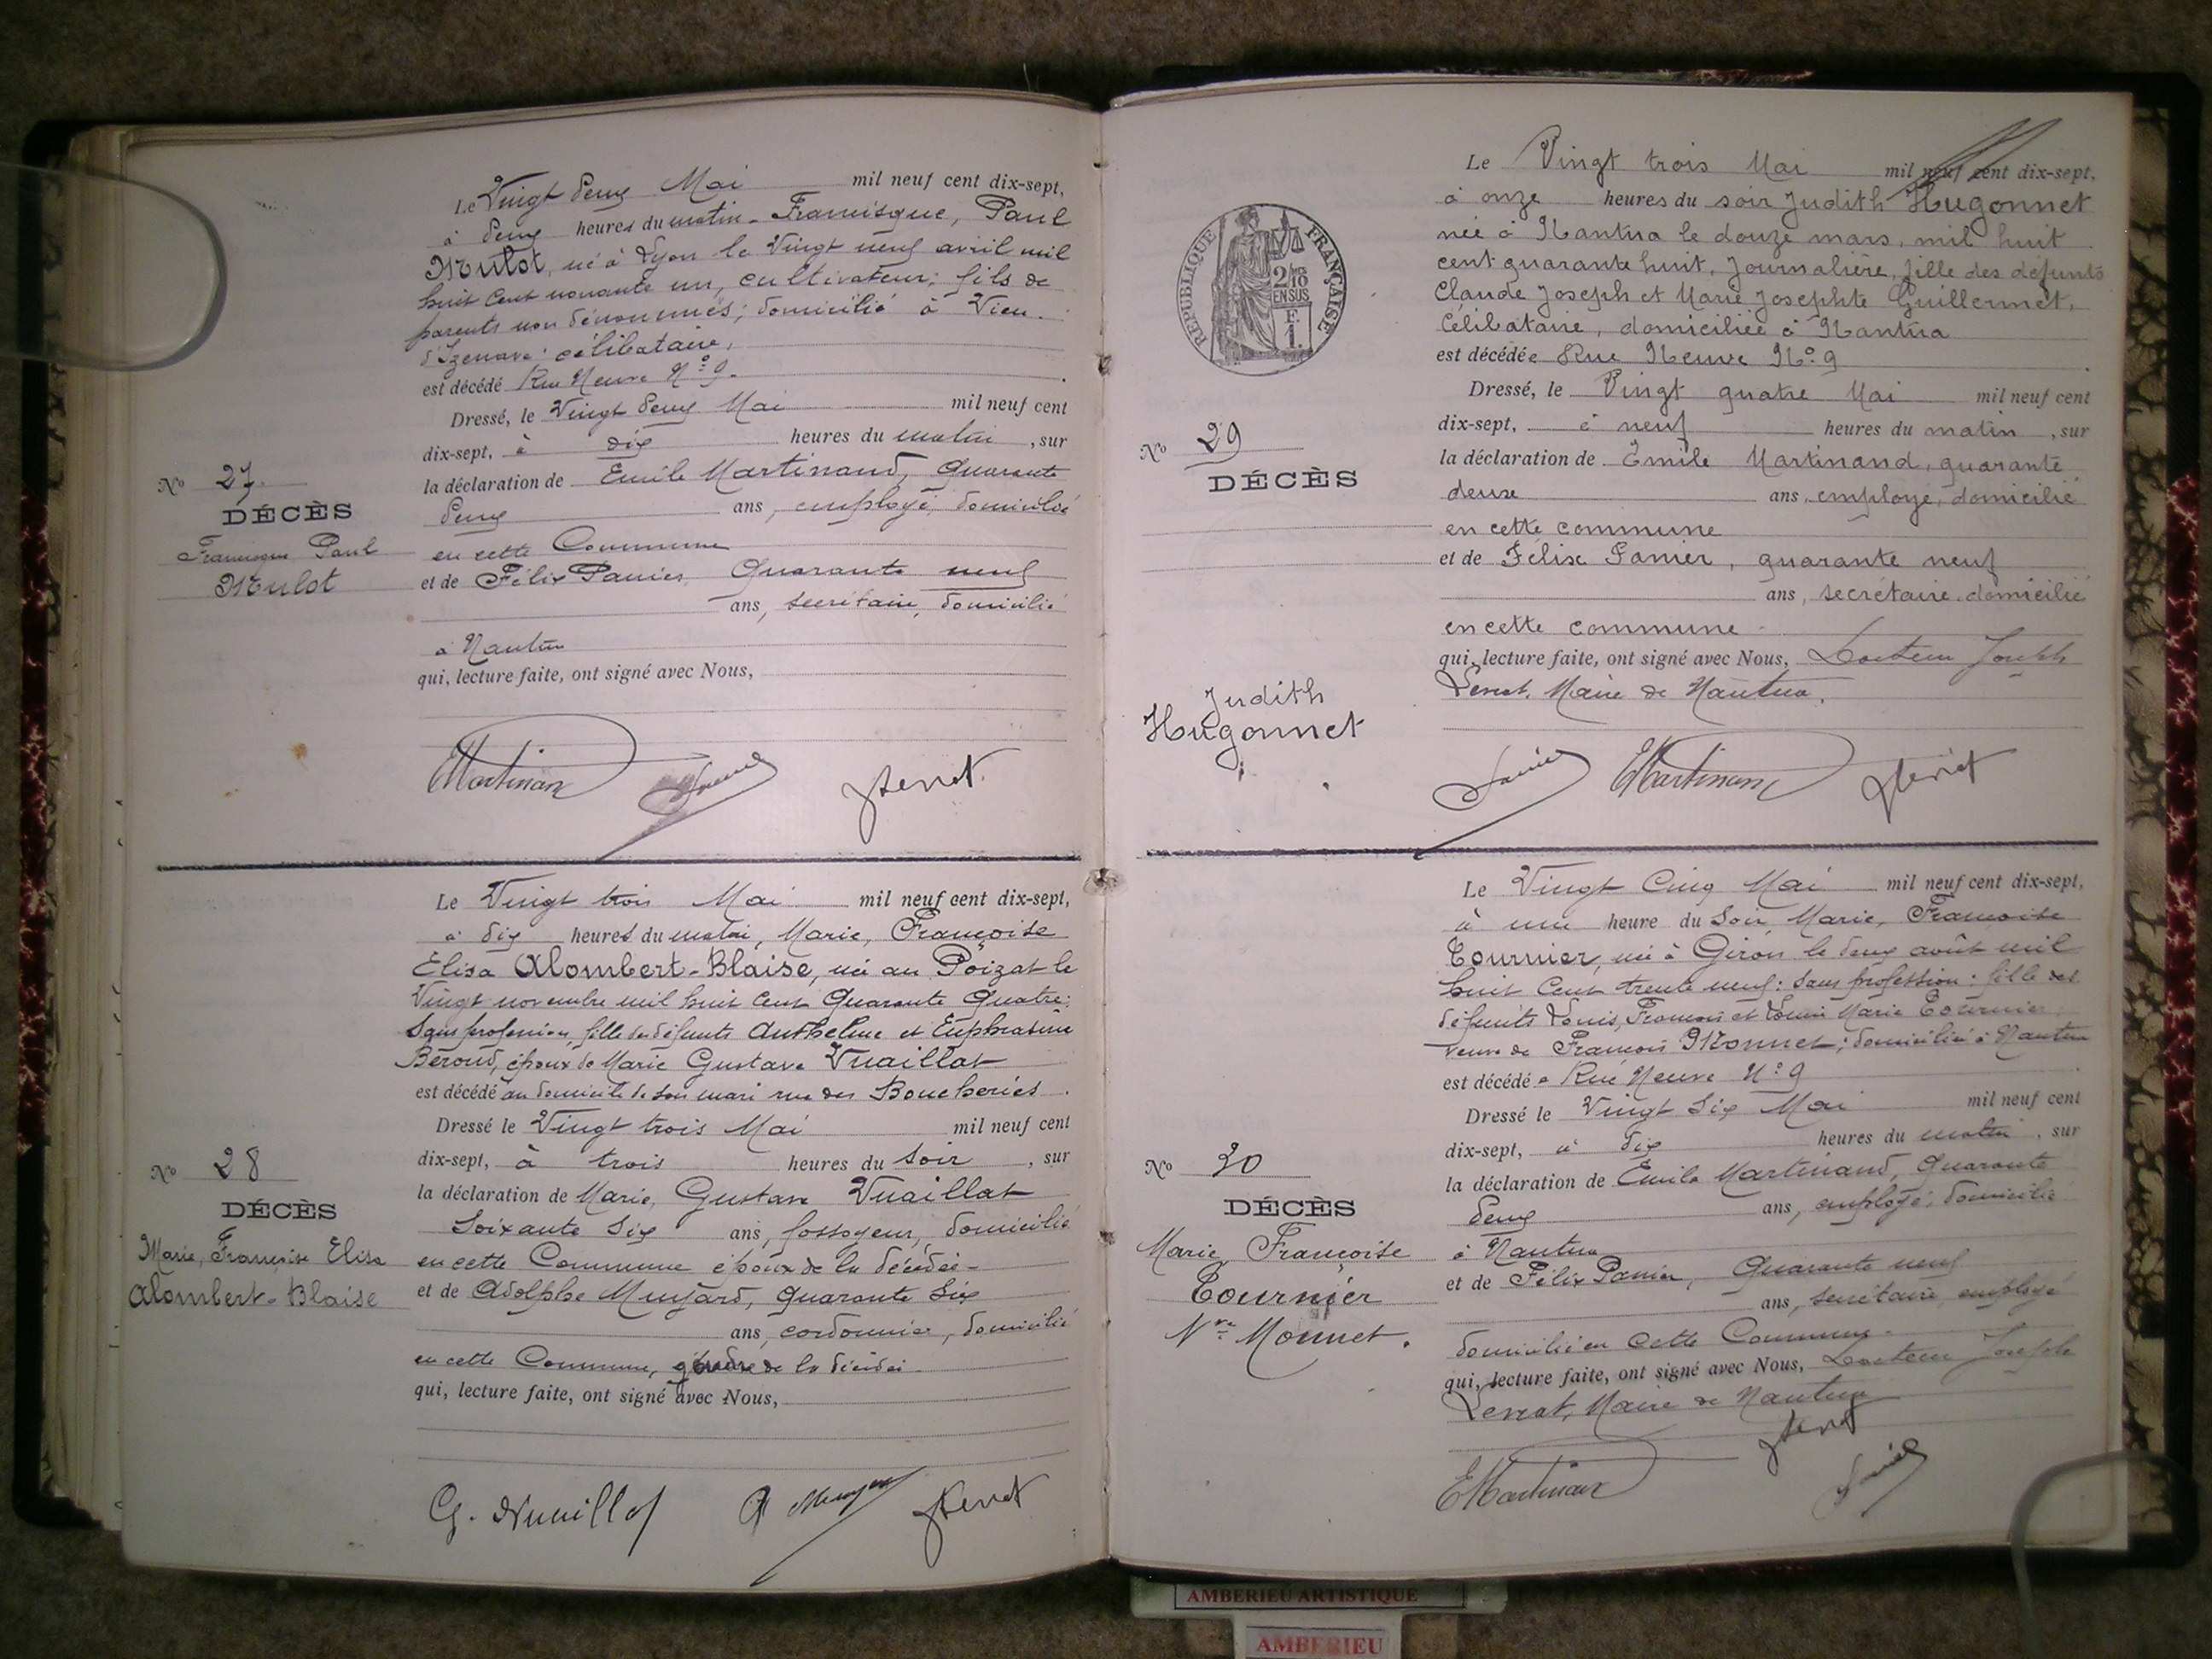 Le Vingt deux Mai mil neuf cent dix-sept,
à deux heures du matin - Francisque, Paul
Mulot, né à Lyon le Vingt neuf avril mil
huit cent nonante un, cultivateur; fils de
parents non dénommés; domicilié à Vieu
d'Izenave célibataire,
est décédé Rue Neuve N° 9.
Dressé, le Vingt deux Mai mil neuf cent
dix-sept, à dix heures du matin, sur
la déclaration de Emile Martinand, Quarante
deux ans, employé, domicilié
en cette Commune
et de Félix Panier, Quarante neuf
ans, secrétaire, domicilié
à Nantua
qui, lecture faite, ont signé avec Nous,
EMartinand
N° 27.
DÉCÈS
Francisque Paul
Mulot
Le Vingt trois Mai mil neuf cent dix-sept,
à dix heures du matin, Marie, Françoise
Elisa Alombert-Blaise, née au Poizat le
Vingt novembre mil huit cent Quarante Quatre;
Sans profession, fille des défunts Anthelme et Euphrasine
Béroud, épouse de Marie Gustave Vuaillat
est décédé au domicile de son mari rue des Boucheries.
Dressé le Vingt trois Mai mil neuf cent
dix-sept, à trois heures du soir, sur
la déclaration de Marie, Gustave Vuaillat
Soixante Six ans, fossoyeur, domicilié
en cette Commune époux de la décédée-
et de Adolphe Munjard, quarante Six
ans, cordonnier, domicilié
en cette Commune, gendre de la décédée
qui, lecture faite, ont signé avec Nous,
G. Vuaillat
N° 28
DÉCÈS
Marie, Françoise Elisa
Alombert-Blaise
RÉPUBLIQUE FRANÇAISE
2/10
EN SUS
F.
1.
Le Vingt trois Mai mil neuf cent dix-sept,
à onze heures du soir Judith Hugonnet
née à Nantua le douze mars, mil huit
cent quarante huit, Journalière, fille des défunts
Claude Joseph et Marie Josephte Guillermet,
Célibataire, domiciliée à Nantua
est décédée Rue Neuve N° 9
Dressé, le Vingt quatre Mai mil neuf cent
dix-sept, à neuf heures du matin, sur
la déclaration de Emile Martinand, quarante
deux ans, employé, domicilié
en cette commune
et de Félix Panier, quarante neuf
ans, secrétaire domicilié
en cette commune
qui, lecture faite, ont signé avec Nous, Docteur Joseph
Levrat, Maire de Nantua.
EMartinand
N° 29
DÉCÈS
Judith
Hugonnet
Le Vingt Cinq Mai mil neuf cent dix-sept,
à une heure du Soir, Marie, Françoise
Tournier, née à Giron le deux août mil
huit Cent trente neuf: Sans profession: fille des
défunts Louis, François et Marie Tournier
veuve de François Monnet; domiciliée à Nantua
est décédée Rue Neuve N° 9
Dressé le Vingt Six Mai mil neuf cent
dix-sept, à dix heures du matin, sur
la déclaration de Emile Martinand, Quarante
deux ans, employé, domicilié
à Nantua
et de Félix Panier, Quarante neuf
ans, secrétaire employé
domicilié en cette Commune
qui, lecture faite, ont signé avec Nous, Docteur Joseph
Levrat, Maire de Nantua
EMartinand
N° 30
DÉCÈS
Marie Françoise
Tournier
Vve Monnet.
AMBERIEU ARTISTIQUE
AMBERIEU